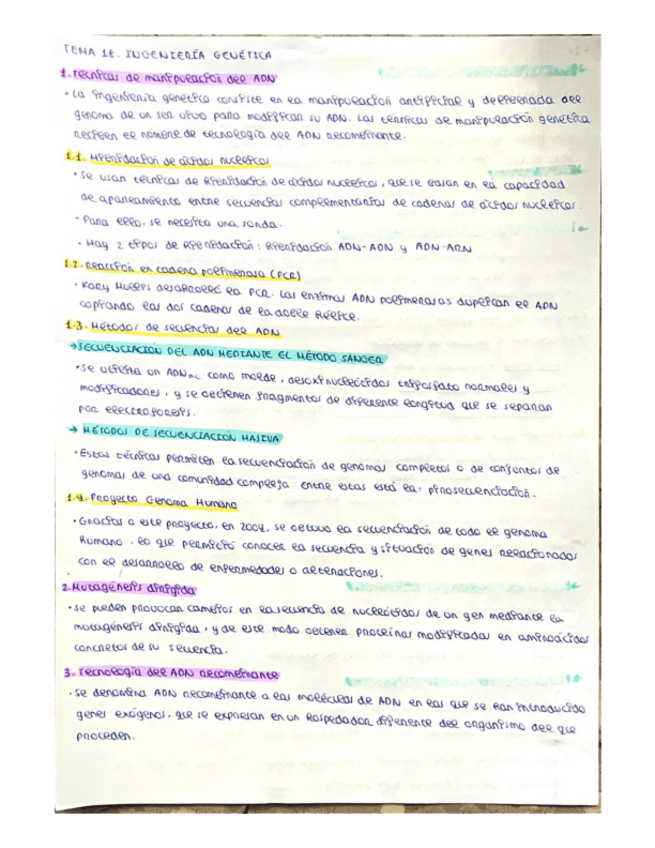 TEMA 18. INGENIERÍA GENÉTICA
1. Técnicas de manipulación del ADN
· La ingeniería genética consiste en la manipulación artificial y deliberada del
genoma de un ser vivo para modificar su ADN. Las técnicas de manipulación genética
reciben el nombre de tecnología del ADN recombinante.
1.1. Hibridación de ácidos nucleicos
· Se usan técnicas de hibridación de ácidos nucleicos, que se basan en la capacidad
de apareamiento entre secuencias complementarias de cadenas de ácidos nucleicos.
· Para ello, se necesita una sonda.
· Hay 2 tipos de hibridación: hibridación ADN-ADN y ADN-ARN
1.2. Reacción en cadena polimerasa (PCR)
· Kary Mullis desarrolló la PCR. Las enzimas ADN polimerasas duplican el ADN
copiando las dos cadenas de la doble hélice.
1.3. Métodos de secuencias del ADN
→ SECUENCIACIÓN DEL ADN MEDIANTE EL MÉTODO SANGER
· Se utiliza un ADNmc como molde, desoxinucleótidos trifosfato normales y
modificadores, y se obtienen fragmentos de diferente longitud que se separan
por electroforesis.
→ MÉTODOS DE SECUENCIACIÓN MASIVA
· Estas técnicas permiten la secuenciación de genomas completos o de conjuntos de
genomas de una comunidad compleja. Entre estas está la: pirosecuenciación.
1.4. Proyecto Genoma Humano
· Gracias a este proyecto, en 2004, se obtuvo la secuenciación de todo el genoma
humano. lo que permitió conocer la secuencia y situación de genes relacionados
con el desarrollo de enfermedades o alteraciones.
2. Mutagénesis dirigida
· Se pueden provocar cambios en la secuencia de nucleótidos de un gen mediante la
mutagénesis dirigida, y de este modo obtener proteínas modificadas en aminoácidos
concretos de su secuencia.
3. Tecnología del ADN recombinante
· Se denomina ADN recombinante a las moléculas de ADN en las que se han introducido
genes exógenos, que se expresan en un hospedador diferente del organismo del que
proceden.